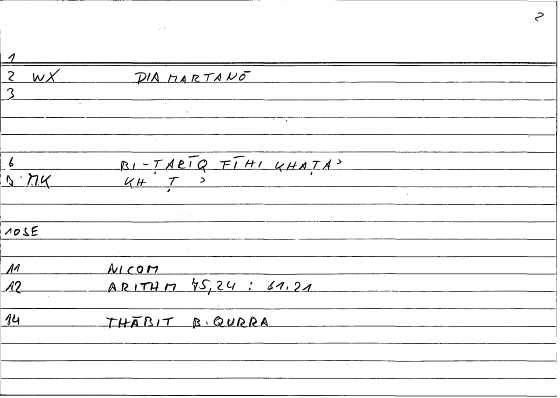 2
1
2 WX DIAMARTANŌ
3
6 BI-ṬARĪQ FĪHI KHAṬAʾ
9 MK KH Ṭ ʾ
10SE
11 NICOM
12 ARITHM 45,24 : 61.21
14 THĀBIT B. QURRA